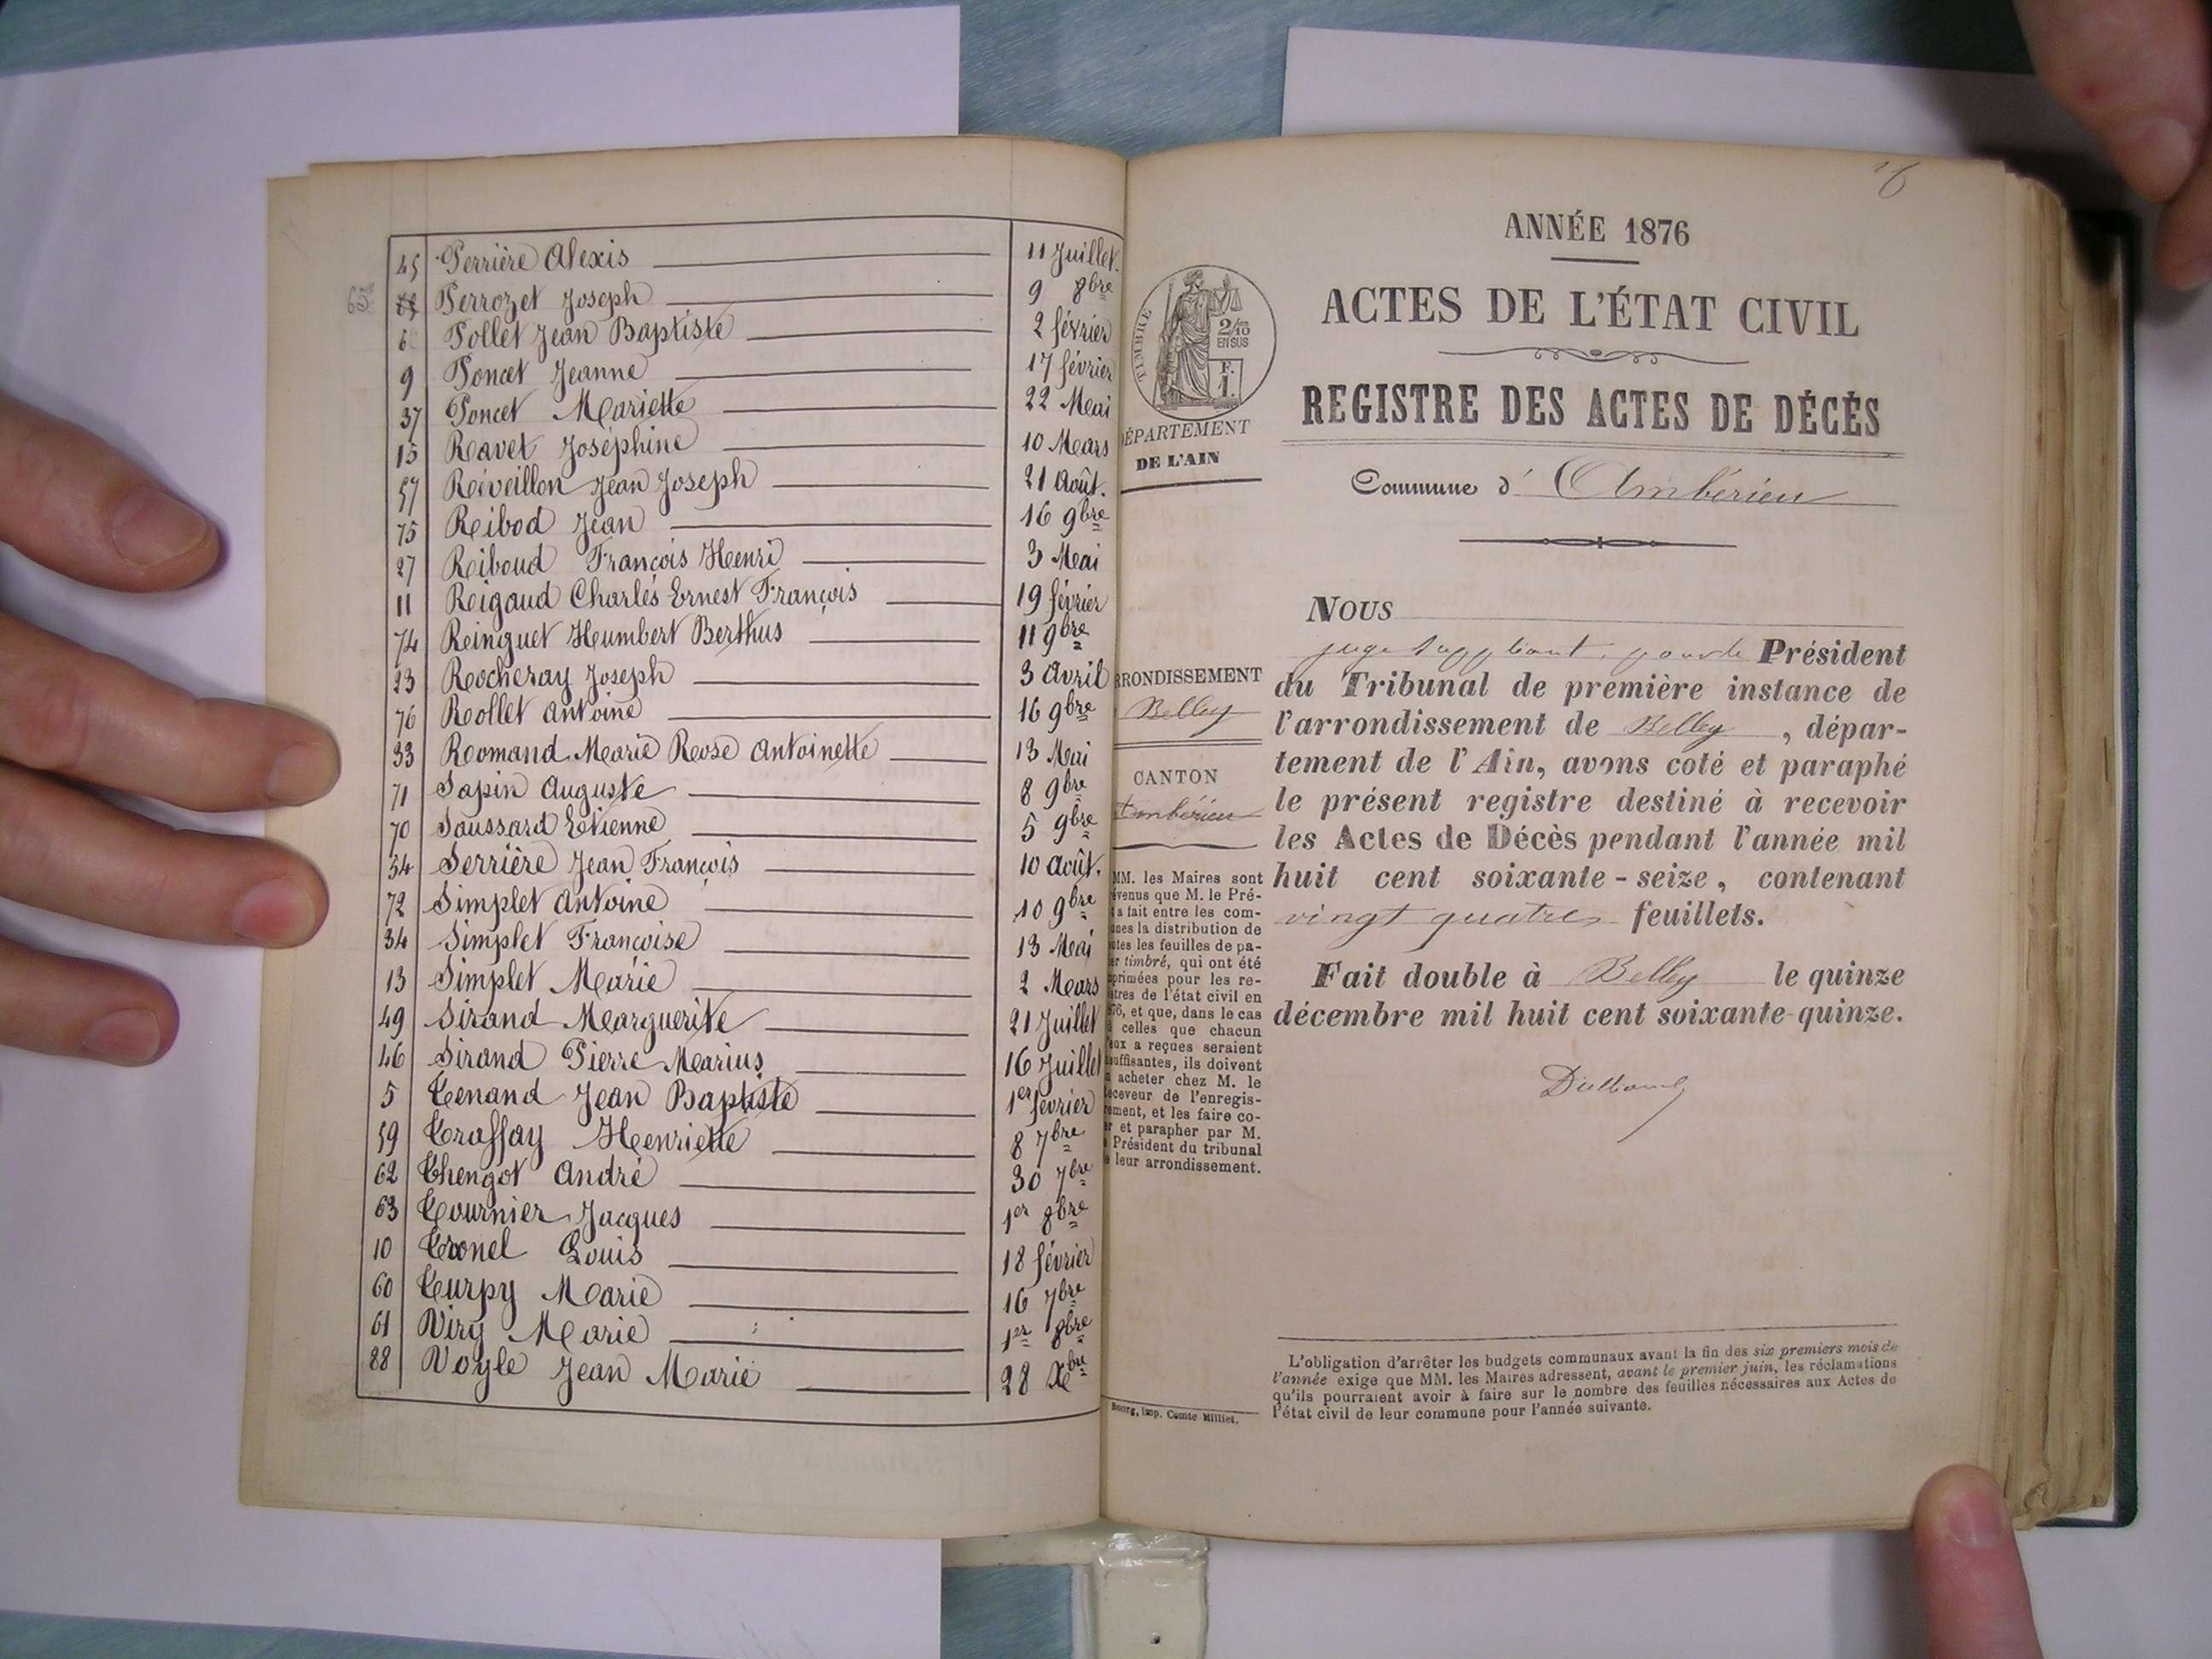 45 Perrière Alexis 11 Juillet.
65 Perrozet Joseph 9 8bre
6 Pollet Jean Baptiste 2 février
9 Poncet Jeanne 17 février
37 Poncet Mariette 22 Mai
15 Ravet Joséphine 10 Mars
57 Réveillon Jean Joseph 21 Août.
75 Ribod Jean 16 9bre
27 Riboud François Henri 3 Mai
11 Rigaud Charles Ernest François 19 février
74 Ringuet Humbert Berthus 11 9bre
23 Rocheray Joseph 3 Avril
76 Rollet Antoine 16 9bre
33 Romand Marie Rose Antoinette 13 Mai
71 Sapin Auguste 8 9bre
70 Saussard Etienne 5 9bre
54 Serrière Jean François 10 Août.
72 Simplet Antoine 10 9bre
34 Simplet Françoise 13 Mai
13 Simplet Marie 2 Mars
49 Sirand Marguerite 21 Juillet
46 Sirand Pierre Marius 16 Juillet
5 Tenand Jean Baptiste 1er février
59 Traffay Henriette 8 7bre
62 Thengot André 30 7bre
63 Tournier Jacques 1er 8bre
10 Tronel Louis 18 février
60 Turpy Marie 16 7bre
61 Viry Marie 1er 8bre
88 Voyle Jean Marie 28 Xbre
TIMBRE
2/10
EN SUS
F.
1.
DÉPARTEMENT
DE L'AIN
ARRONDISSEMENT
Belley
CANTON
Ambérieu
MM. les Maires sont
évenus que M. le Pré-
a fait entre les com-
nes la distribution de
tes les feuilles de pa-
er timbré, qui ont été
primées pour les re-
tres de l'état civil en
76, et que, dans le cas
celles que chacun
eux a reçues seraient
suffisantes, ils doivent
acheter chez M. le
eceveur de l'enregis-
rement, et les faire co-
er et parapher par M.
Président du tribunal
leur arrondissement.
Bourg, imp. Comte Milliet.
ANNÉE 1876
ACTES DE L'ÉTAT CIVIL
REGISTRE DES ACTES DE DÉCÈS
Commune d' Ambérieu
NOUS
juge suppléant, pour le Président
du Tribunal de première instance de
l'arrondissement de Belley, dépar-
tement de l'Ain, avons coté et paraphé
le présent registre destiné à recevoir
les Actes de Décès pendant l'année mil
huit cent soixante-seize, contenant
vingt quatre feuillets.
Fait double à Belley le quinze
décembre mil huit cent soixante-quinze.
L'obligation d'arrêter les budgets communaux avant la fin des six premiers mois de
l'année exige que MM. les Maires adressent, avant le premier juin, les réclamations
qu'ils pourraient avoir à faire sur le nombre des feuilles nécessaires aux Actes de
l'état civil de leur commune pour l'année suivante.